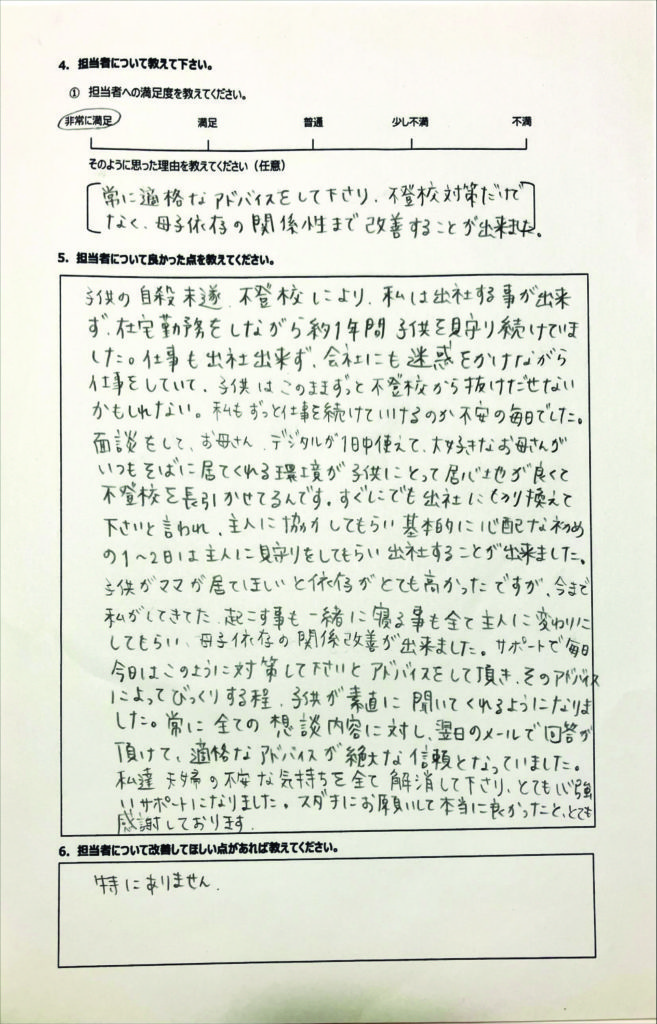 4. 担当者について教えて下さい。
① 担当者への満足度を教えてください。
非常に満足 満足 普通 少し不満 不満
そのように思った理由を教えてください（任意）
常に適格なアドバイスをして下さり、不登校対策だけで
なく、母子依存の関係性まで改善することが出来ました。
5. 担当者について良かった点を教えてください。
子供の自殺未遂、不登校により、私は出社する事が出来
ず、在宅勤務をしながら約1年間子供を見守り続けていま
した。仕事も出社出来ず、会社にも迷惑をかけながら
仕事をしていて、子供はこのままずっと不登校から抜けだせない
かもしれない。私もずっと仕事を続けていけるのか不安の毎日でした。
面談をして、お母さん、デジタルが1日中使えて、大好きなお母さんが
いつもそばに居てくれる環境が子供にとって居心地が良くて
不登校を長引かせてるんです。すぐにでも出社に切り換えて
下さいと言われ、主人に協力してもらい基本的に心配な初め
の1〜2日は主人に見守りをしてもらい出社することが出来ました。
子供がママが居てほしいと依存がとても高かったですが、今まで
私がしてきてた、起こす事も一緒に寝る事も全て主人に変わりに
してもらい、母子依存の関係改善が出来ました。サポートで毎日
今日はこのように対策して下さいとアドバイスをして頂き、そのアドバイス
によってびっくりする程、子供が素直に聞いてくれるようになりま
した。常に全ての想談内容に対し、翌日のメールで回答が
頂けて、適格なアドバイスが絶大な信頼となっていました。
私達夫婦の不安な気持ちを全て解消して下さり、とても心強
いサポートになりました。スダチにお願いして本当に良かったと、とても
感謝しております。
6. 担当者について改善してほしい点があれば教えてください。
特にありません。